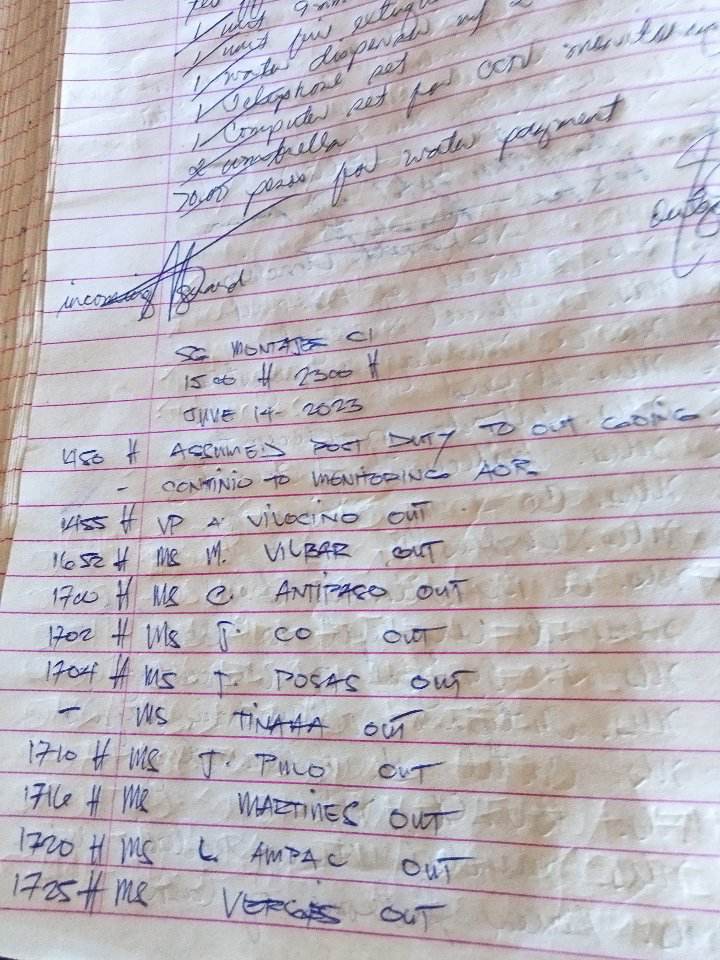 1 unit 9mm
1 unit fire
1 water dispenser
1 Telephone set
1 Computer set for CCTV
2 umbrella
70.00 pesos for water payment
incoming guard
SG MONTAJE CI
1500 H 2300 H
JUNE 14- 2023
1450 H ASSUMED POST DUTY TO OUT GOING
- CONTINIO TO MENITORING AOR
1455 H VP A. VILOCINO OUT
1652 H MS M. VILBAR OUT
1700 H MS C. ANTIPASO OUT
1702 H MS J. CO OUT
1704 H MS T. POSAS OUT
- MS OUT
1710 H MS J. OUT
1716 H MS MARTINES OUT
1720 H MS L. AMPAC OUT
1725 H MS OUT